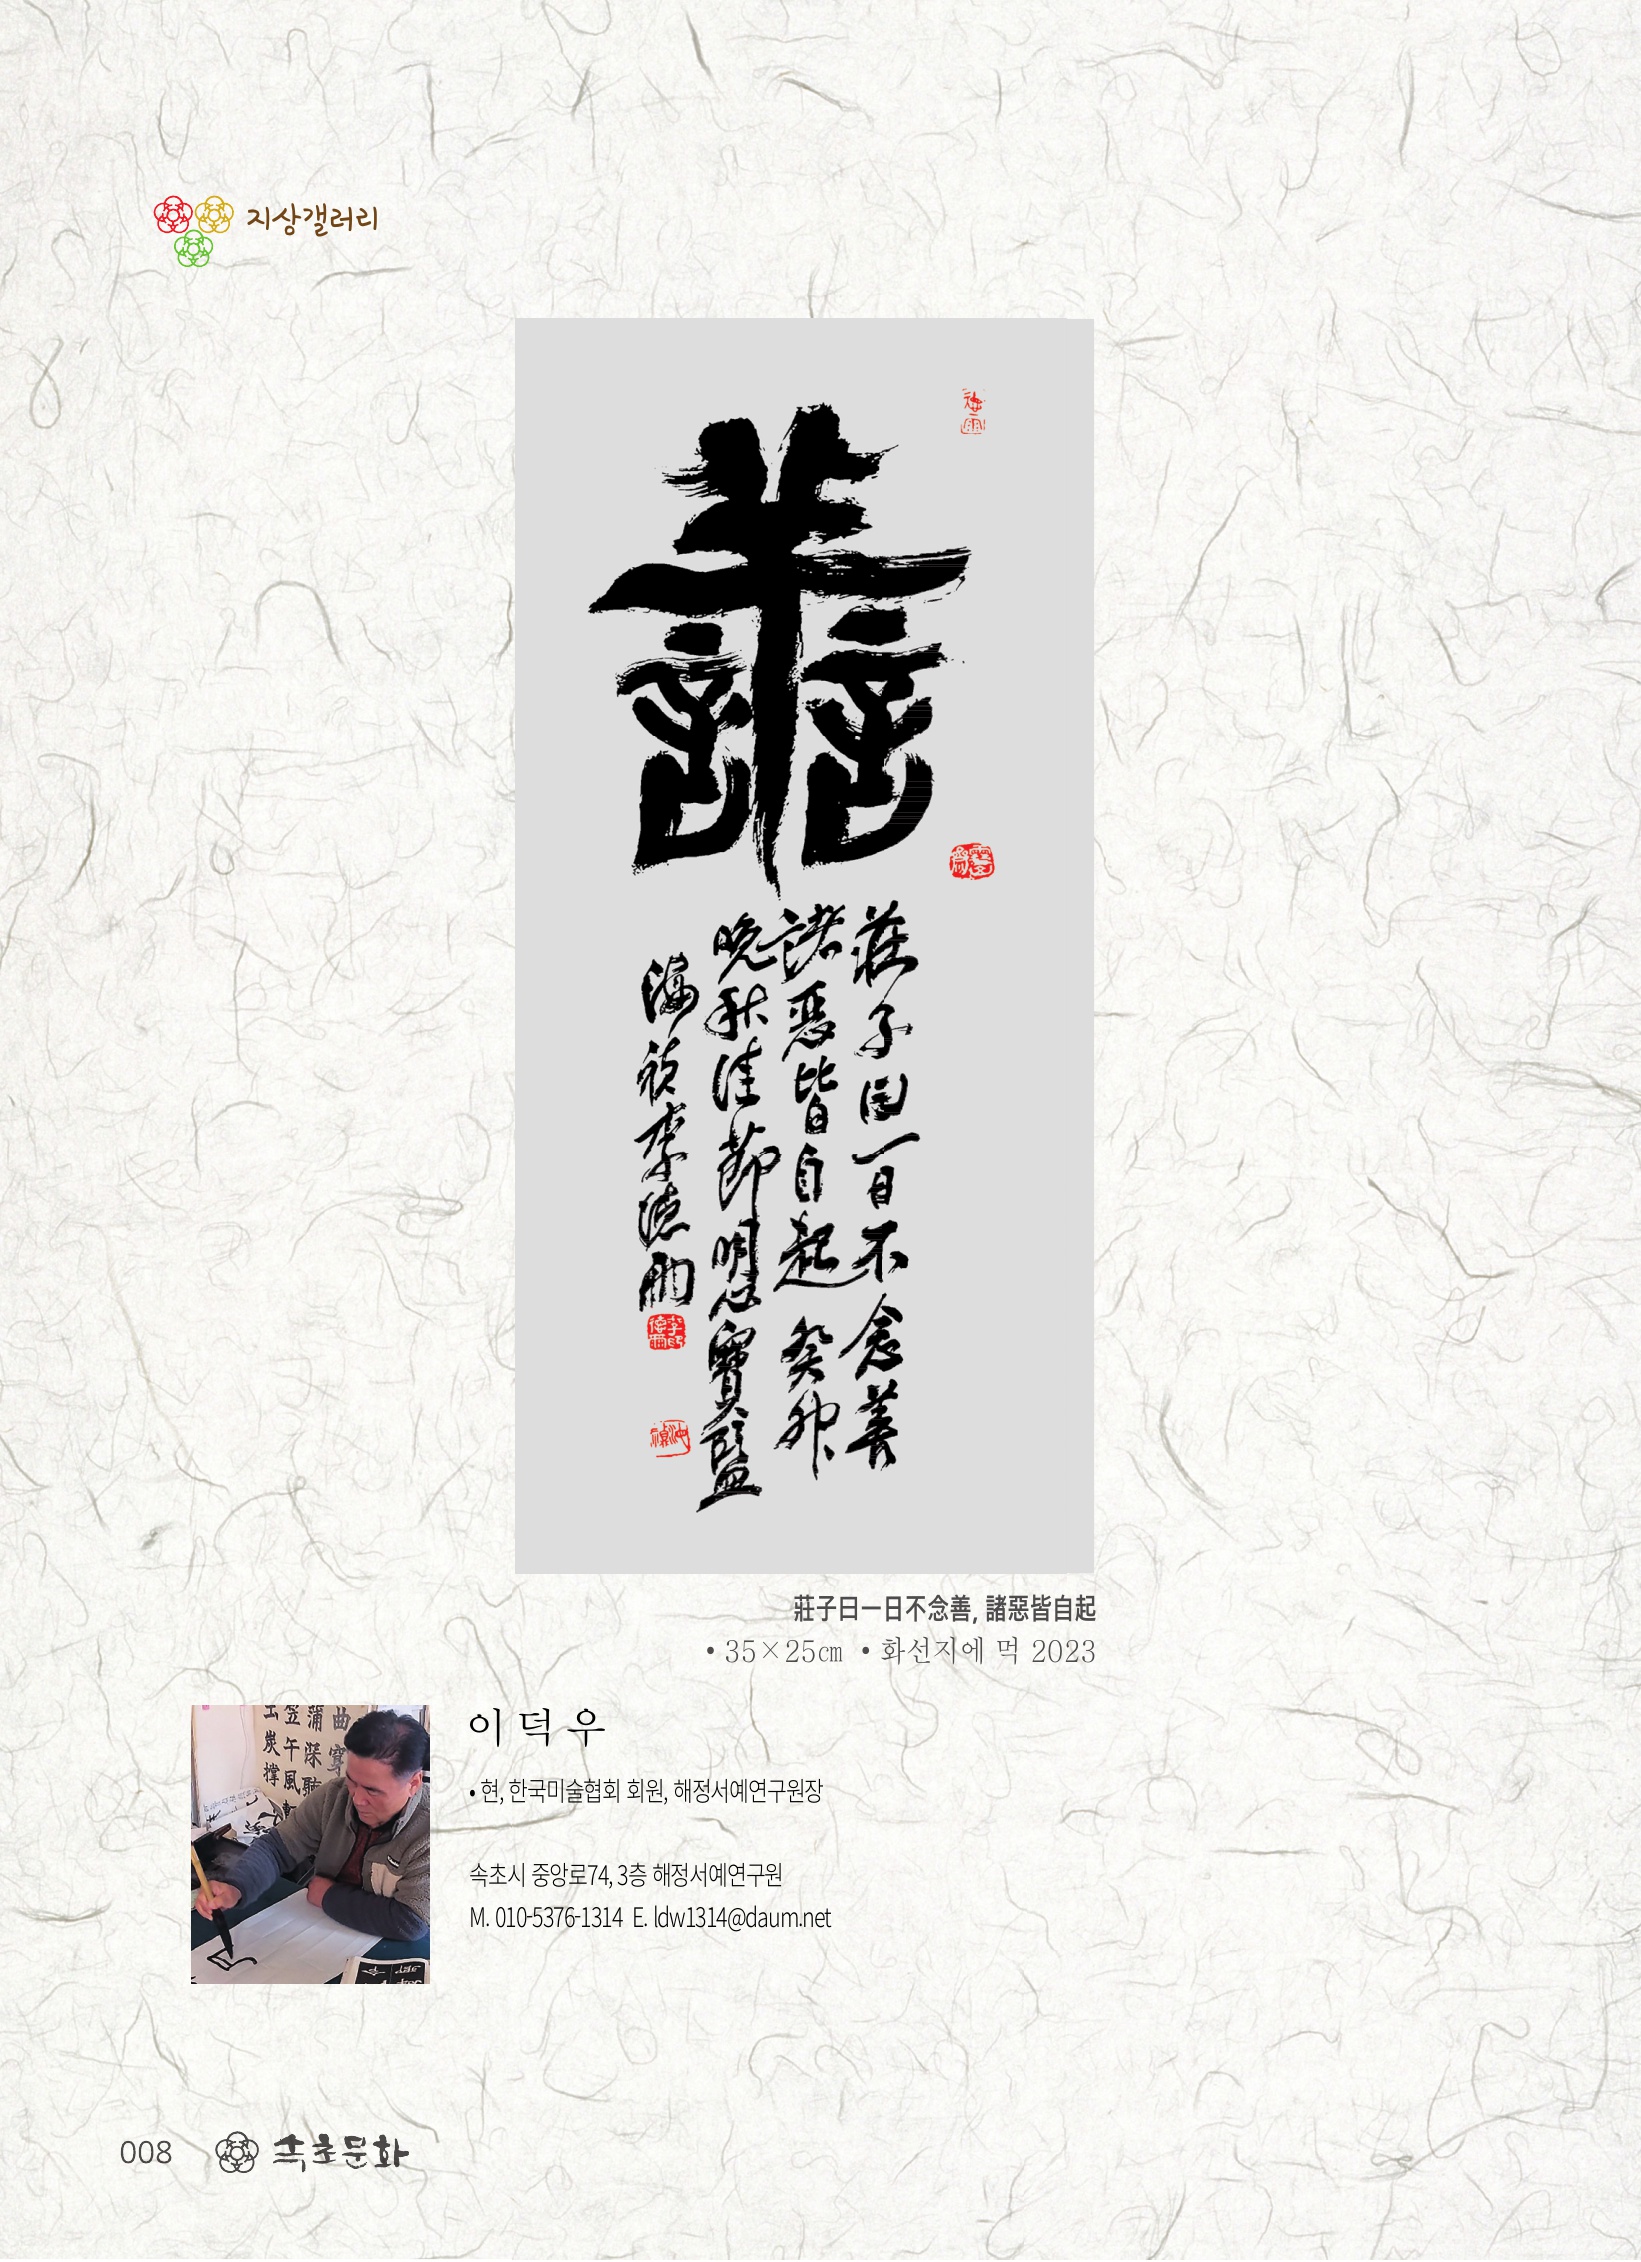 지상갤러리
善
莊子曰一日不念善
諸惡皆自起 癸卯
晩秋佳節明心寶鑑
海禎李德雨
莊子曰一日不念善, 諸惡皆自起
• 35×25㎝ • 화선지에 먹 2023
이덕우
• 현, 한국미술협회 회원, 해정서예연구원장
속초시 중앙로74, 3층 해정서예연구원
M. 010-5376-1314 E. ldw1314@daum.net
008 속초문화